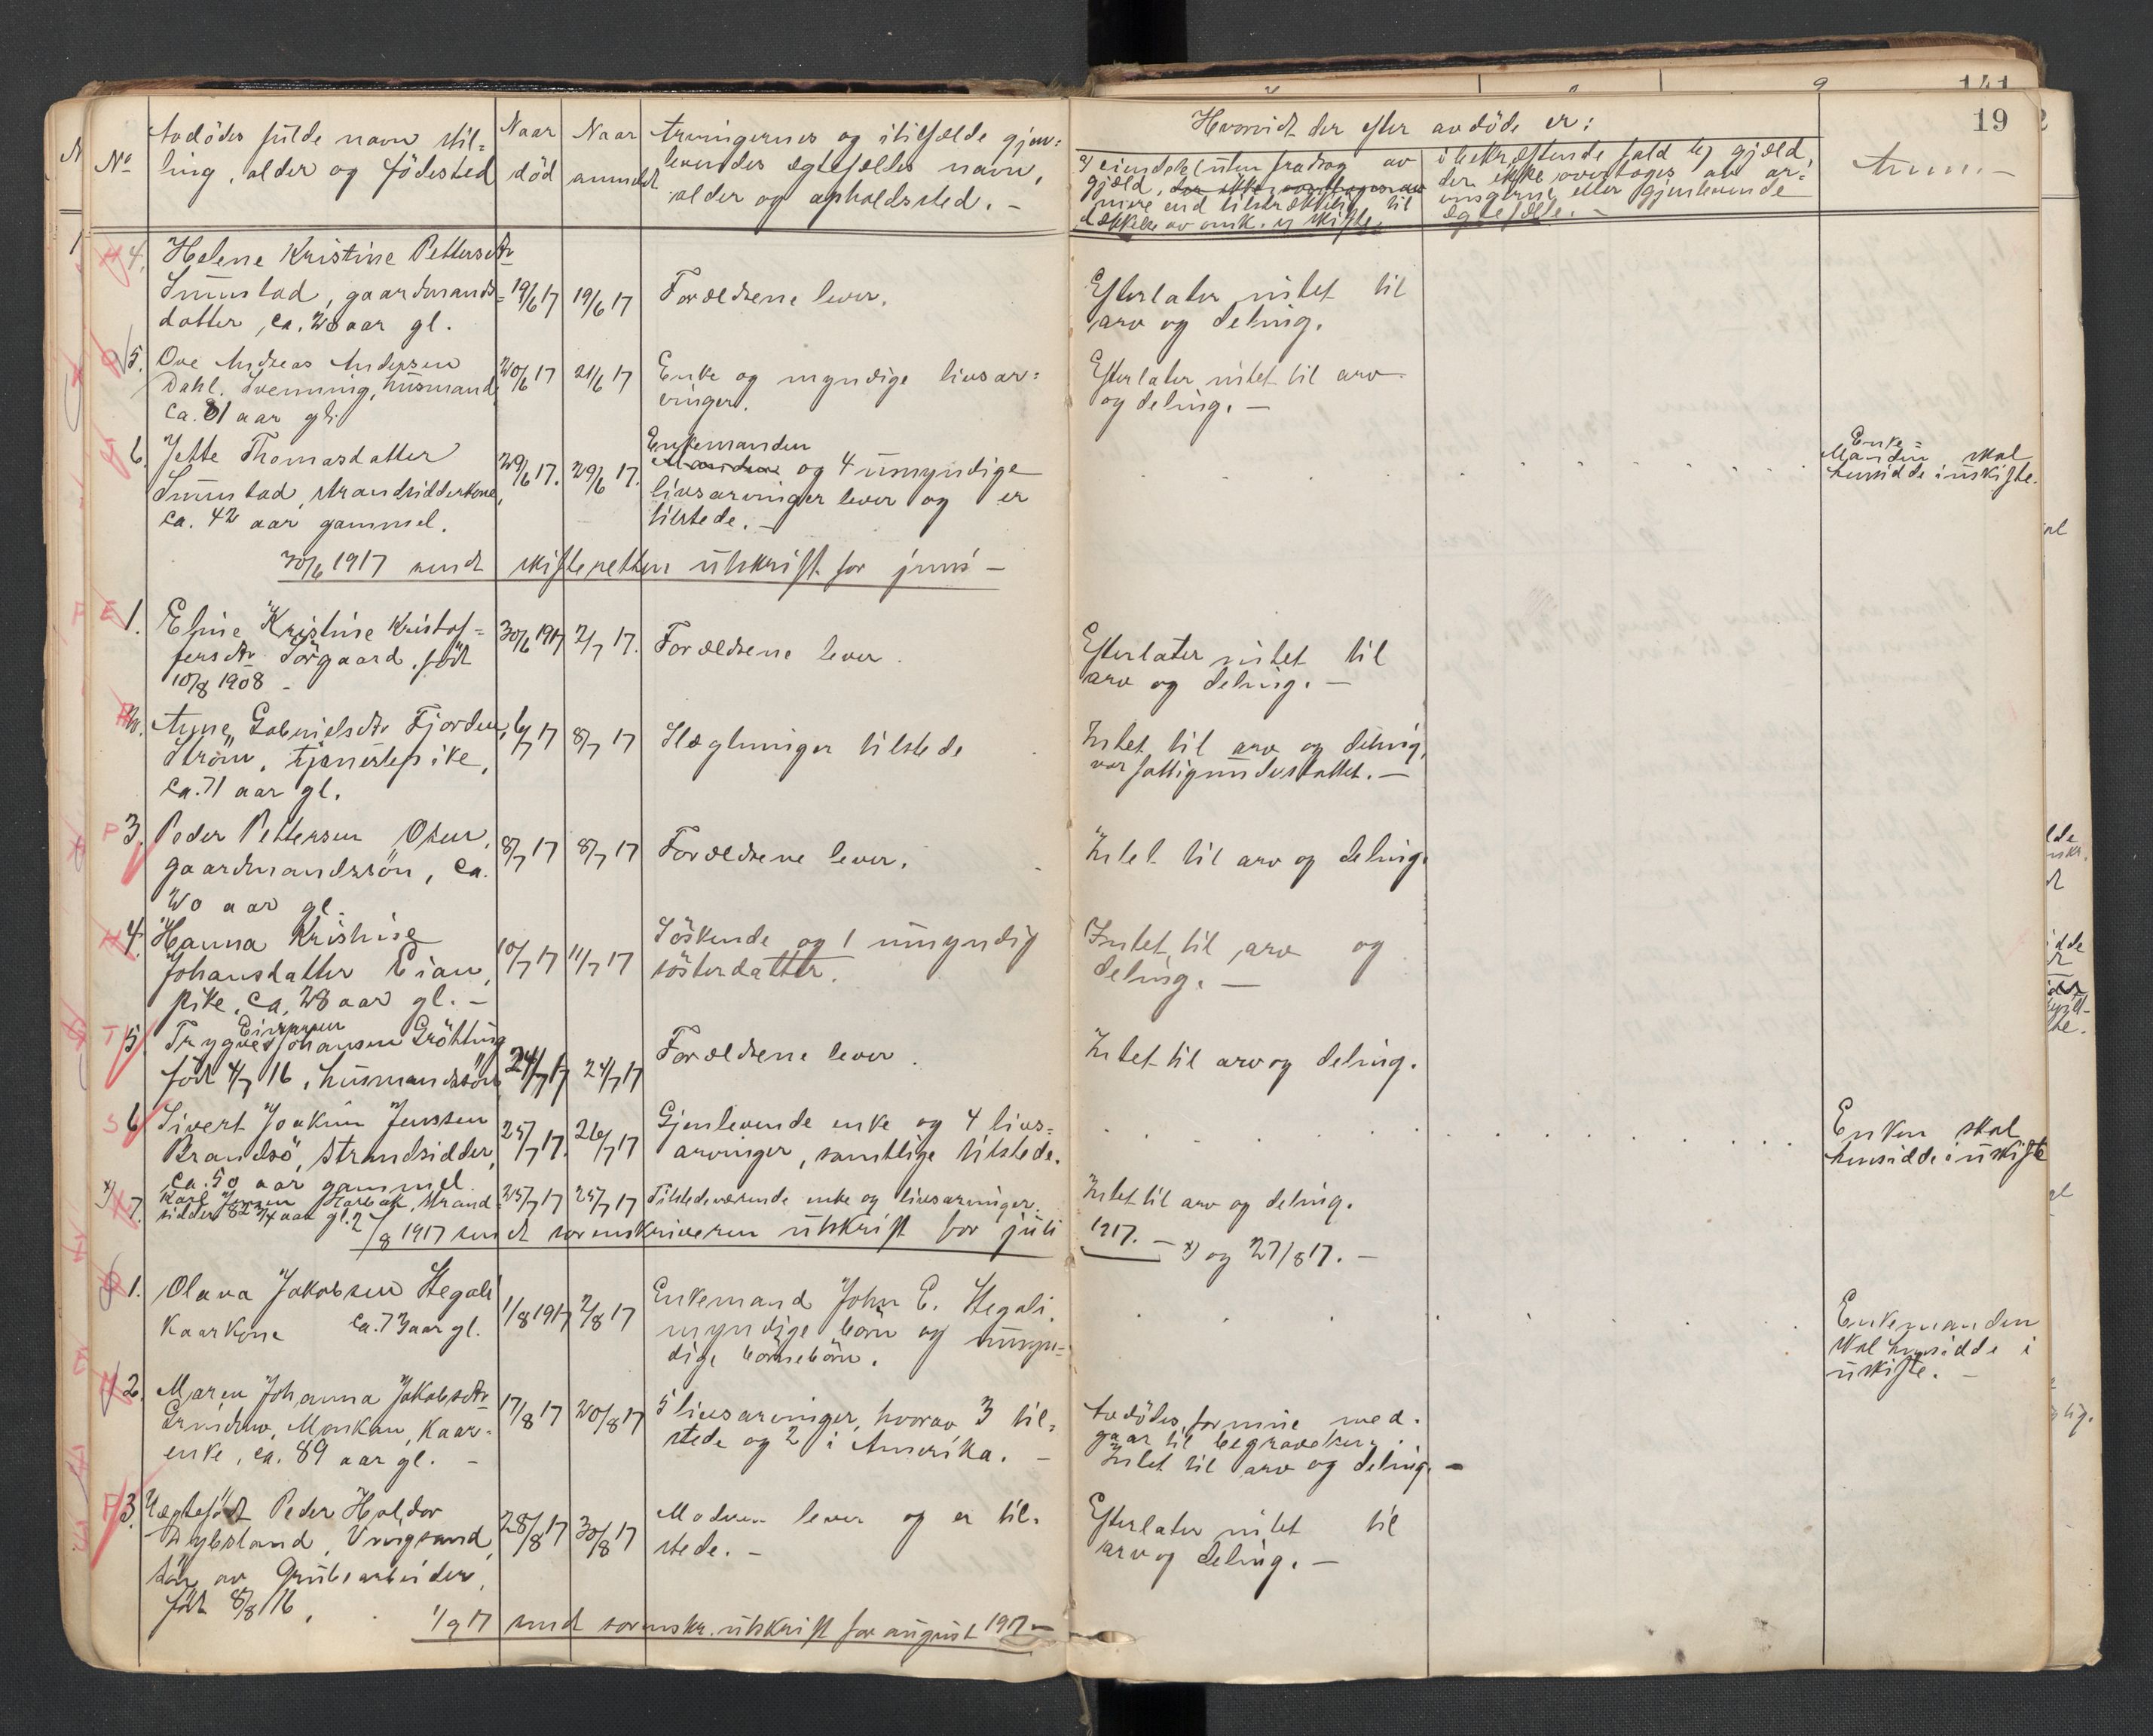 141
19
No
Avdödes fulde navn stil-
ling, alder og födested
Naar
död
Naar
anmeldt
Arvingernes og i tilfælde gjen-
levendes egtefælles navn,
alder og opholdssted. -
Hvorvidt der efter avdöde er:
a) eiendele (uten fradrag av
gjæld,
mere end tilstrækkelig til
dækkelse av omk. ved skifte,
i bekræftende fald b) gjæld,
der ikke overtages av ar-
vingerne eller gjenlevende
egtefælle. -
Anm. -
4. Helene Kristine Pettersdtr
Smustad, gaardmands-
datter, ca. 20 aar gl.
19/6 17
19/6 17
Forældrene lever.
Efterlater intet til
arv og deling.
5. Ove Andreas Andersen
Dahl, Svenning, husmand,
ca. 81 aar gl.
20/6 17
21/6 17
Enke og myndige livsar-
vinger.
Efterlater intet til arv
og deling. -
6. Jette Thomasdatter
Smustad, strandsidderkone,
ca. 42 aar gammel.
29/6 17.
29/6 17.
Enkemanden
Manden og 4 umyndige
livsarvinger lever og er
tilstede. -
Enke-
Manden skal
hensidde i uskifte.
30/6 1917 sendt skifteretten utskrift for juni -
1. Eline Kristine Kristof-
fersdtr Sörgaard, födt
10/8 1908 -
30/6 1917
2/7 17.
Forældrene lever.
Efterlater intet til
arv og deling. -
2. Anne Gabrielsdtr Fjorden,
Ström, tjenestepike,
ca. 71 aar gl.
6/7 17
8/7 17
Slægtninger tilstede
Intet til arv og deling,
var fattigunderstöttet. -
3. Peder Pettersen Osen,
gaardmandssön, ca.
20 aar gl.
8/7 17
8/7 17
Forældrene lever.
Intet til arv og deling.
4. Hanna Kristine
Johansdatter Eian,
pike, ca. 28 aar gl. -
10/7 17
11/7 17
Söskende og 1 umyndig
sösterdatter.
Intet til arv og
deling. -
5. Einarsen
Trygve Johansen Gröttling
födt 4/7 16, husmandssön
24/7 17
24/7 17
Forældrene lever.
Intet til arv og deling.
6. Sivert Joakim Jenssen
Brandsö, strandsidder,
ca. 50 aar gammel
25/7 17.
26/7 17
Gjenlevende enke og 4 livs-
arvinger, samtlige tilstede.
Enken skal
hensidde i uskifte
x) 7. Karl Jensen Harbak, strand-
sidder 82 3/4 aar gl.
25/7 17
25/7 17
Tilstedeværende enke og livsarvinger.
Intet til arv og deling.
2/8 1917 sendt sorenskriveren utskrift for juli
1917. - x) og 27/8 17. -
1. Olava Jakobsen Stegali
Kaarkone ca. 73 aar gl.
1/8 1917
2/8 17
Enkemand John E. Stegali,
myndige börn og umyn-
dige börnebörn.
Enkemanden
skal hensidde i
uskifte. -
2. Maren Johanna Jakobsdtr
Monkan, Kaar-
enke, ca. 89 aar gl. -
17/8 17
20/8 17
5 livsarvinger, hvorav 3 til-
stede og 2 i Amerika. -
Avdödes formue med-
gaar til begravelsen.
Intet til arv og deling. -
3. Uegtefödt Peder Haldor
Vingsand,
sön av Grubearbeider,
födt 8/8 16.
28/8 17
30/8 17
Moderen lever og er til-
stede. -
Efterlater intet til
arv og deling. -
1/9 17 sendt sorenskr. utskrift for august 1917 -